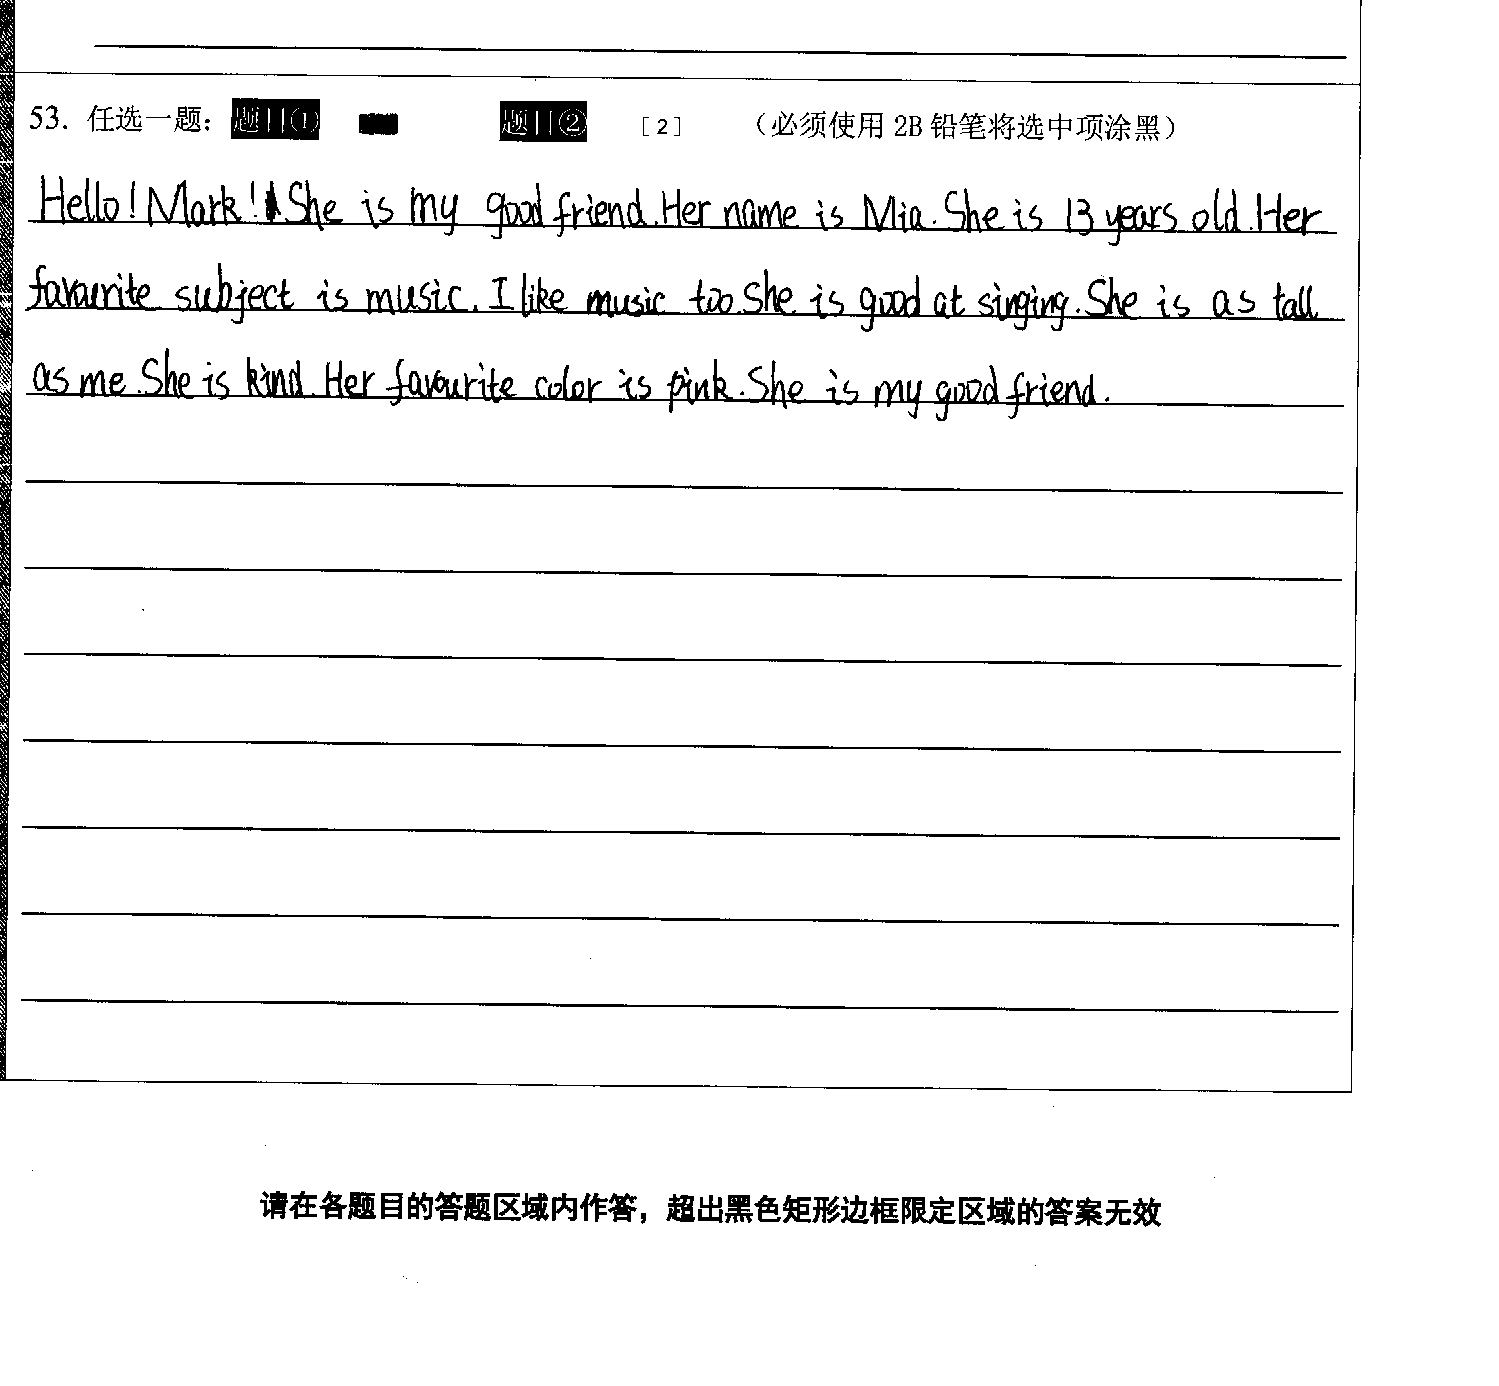 53. 任选一题: 题目① 题目② [2] （必须使用 2B 铅笔将选中项涂黑）
Hello! Mark! She is my good friend. Her name is Mia. She is 13 years old. Her
favourite subject is music. I like music too. She is good at singing. She is as tall
as me. She is kind. Her favourite color is pink. She is my good friend.
请在各题目的答题区域内作答，超出黑色矩形边框限定区域的答案无效